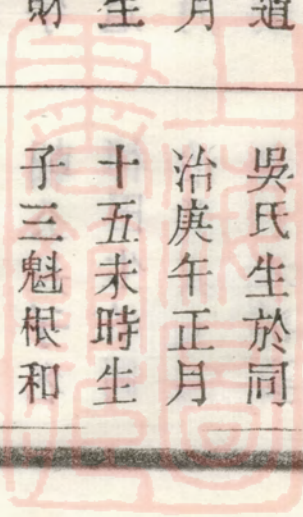 道
月
生
財
吳氏生於同
治庚午正月
十五未時生
子三魁根和